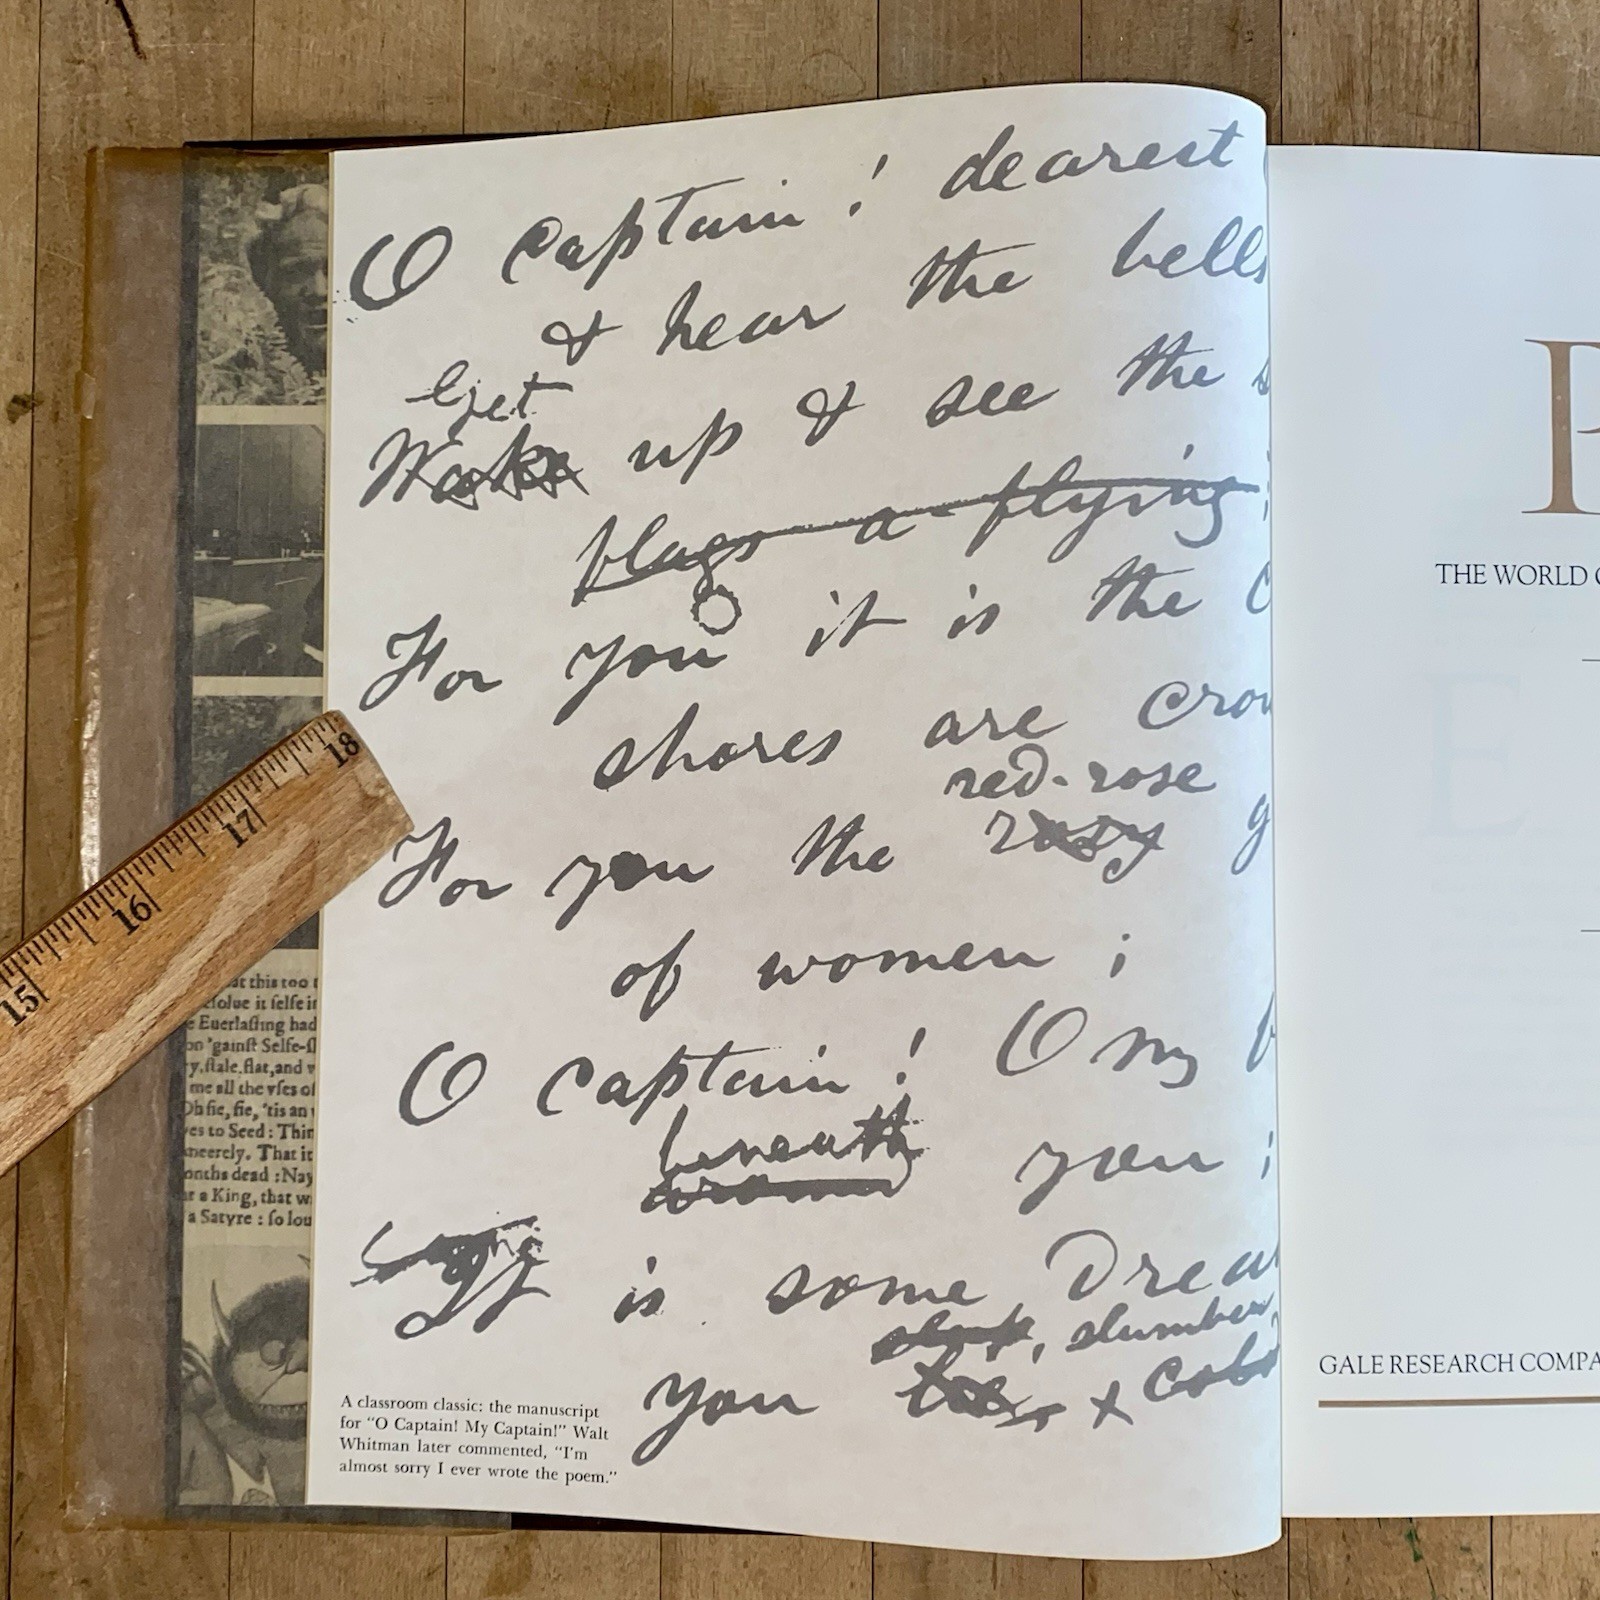 O Captain! dearest
& hear the bells
Get
Wake up & see the
flags a-flying
For you it is the
shores are
red-rose
For you the rosy
of women;
O Captain! O my
beneath
around you;
It is some
slumber
you
A classroom classic: the manuscript
for "O Captain! My Captain!" Walt
Whitman later commented, "I'm
almost sorry I ever wrote the poem."
15 16 17 18
at this too
it selfe
Euerlasting had
'gainst Selfe-
stale, flat, and
me all the vses of
Oh fie, fie, 'tis an
to Seed: Thin
That it
dead: Nay
a King, that
a Satyre: so
THE WORLD
GALE RESEARCH